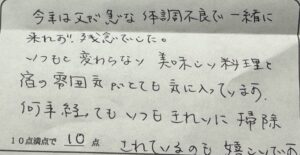 今年は父が急な体調不良で一緒に
来れず、残念でした。
いつもと変わらない美味しい料理と
宿の雰囲気がとても気に入っています。
何年経ってもいつもきれいに掃除
10点満点で 10 点
されているのも嬉しいです